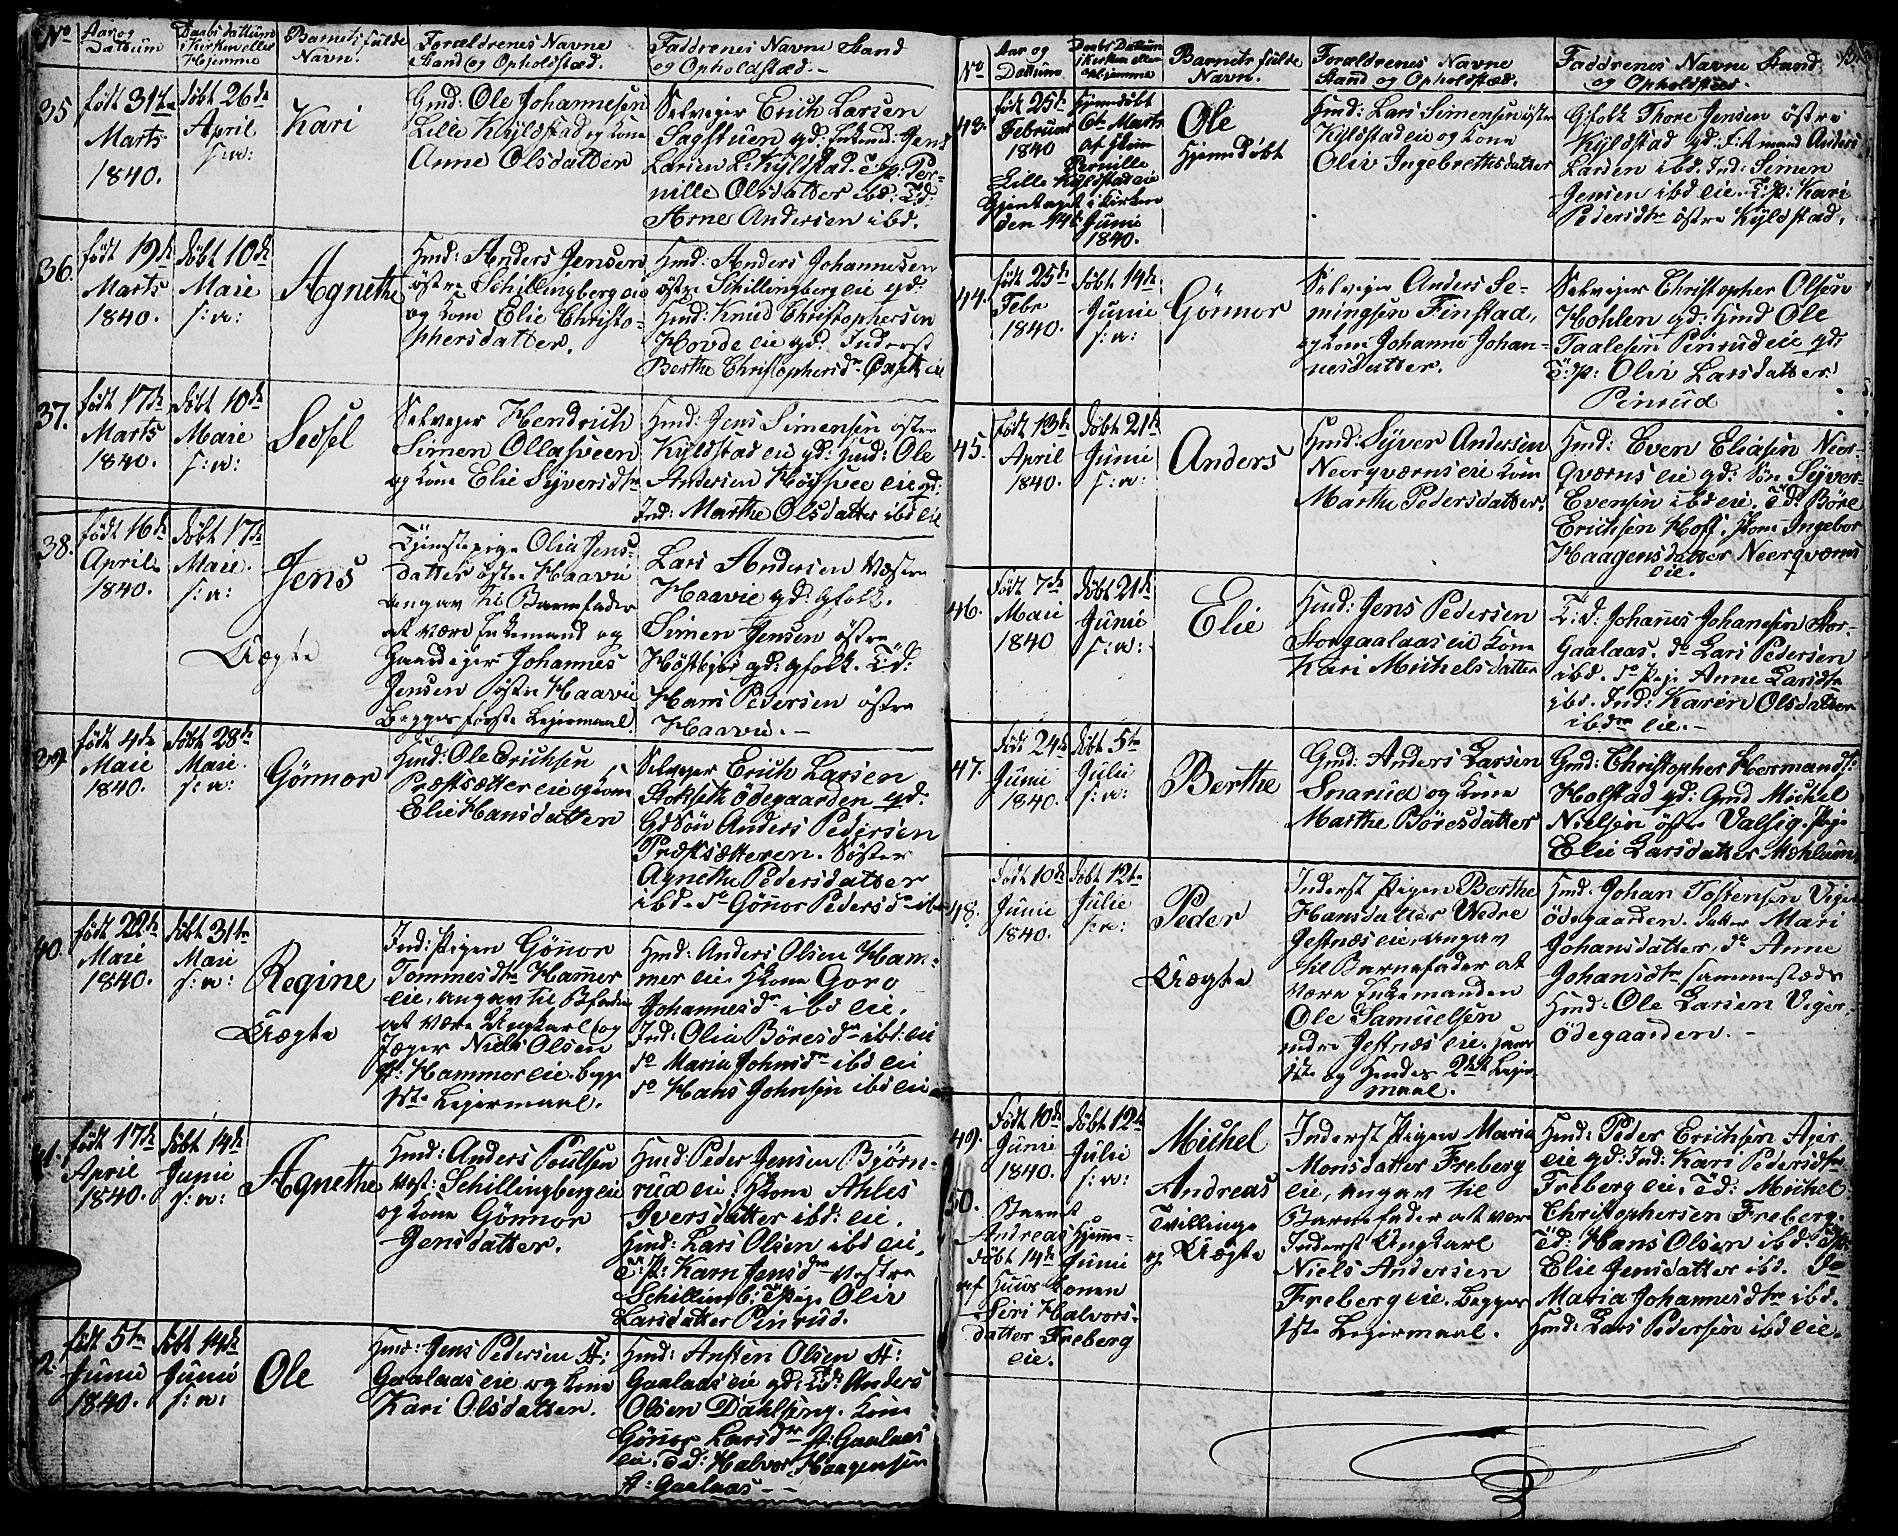 No
Aar og
Datum
Daabs dattum
i Kirken eller
Hjemme
Barnets fulde
Navn.
Forældrenes Navne
Stand og Opholdstæd.
Faddrenes Navne Stand
og Opholdstæd.-
35
født 31te
Marts
1840.
døbt 26de
April
s: a:
Kari
Gmd: Ole Johannesen
Lille Kyldstad og Kone
Anne Olsdatter
Selveger Erich Larsen
Sagstuen gd: Enkemd: Jens
Larsen L: Kyldstad. T. p: Per-
nille Olsdatter ibd: T.d:
Arne Andersen ibd.
36.
født 19de
Marts
1840.
døbt 10de
Maie
s: a:
Agnethe
Hmd: Anders Jensen
østre Schillingberg eie
og Kone Elie Christo-
phersdatter.
Hmd: Anders Johannesen
østre Schillingberg eie gd:
Hmd: Knud Christophersen
Hovde eie gd: Inderst
Berthe Christophersdr
37.
født 17de
Marts
1840.
døbt 10de
Maie
s: a:
Sedsel
Selveger Hendrich
Simen Ollasveen
og Kone Elie Syversdtr
Hmd: Jens Simensen østre
Kyldstad eie gd: Hmd: Ole
Andersen eie gd:
Ind: Marthe Olsdatter ibd eie
38.
født 16de
April
1840.
døbt 17de
Maie.
s: a:
Jens
Uægte
Tjenstepige Olia Jens-
datter østre Haavie
angav til Barnefader
at være Enkemand og
Gaardeger Johannes
Jensen østre Haavie
Begges første Lejermaal.
Lars Andersen Vestre
Haavie gd: gfolk.
Simen Jensen østre
gd: gfolk. T.d:
Hans Pedersen østre
Haavie. -
39.
født 4de
Maie
1840.
døbt 28de
Maie.
s: a:
Gønnor
Hmd: Ole Erichsen
Præstsætter eie og Kone
Elie Hansdatter
Selveger Erich Larsen
Stokseth ødegaarden gd:
Gd Søn Anders Pedersen
Præstsætteren. Søster
Agnethe Pedersdatter
ibd. do Gønor Pedersdr ibd
40.
født 22de
Maie
1840.
døbt 31te
Maie
s: a:
Regine
Uægte
Ind: Pigen Gønor
Tommesdtr Hamer
eie, angav til Bfader
at være Ungkarl og
Jæger Niels Olsen
p: Hammer eie. begge
1ste Lejermaal.
Hmd: Anders Olsen Ham-
mer eie. Hkone Goro
Johannesdr ibd eie.
Ind: Olia Børesdr ibd: eie
do Maria Johnsdr ibd eie
do Hans Johnsen ibd eie
41.
født 17de
April
1840.
døbt 14de
Junie
s: a:
Agnethe
Hmd: Anders Poulsen
vest: Schillingberg eie
og Kone Gønnor
Jensdatter.
Hmd Peder Jensen Bjørn-
rud eie; Hkone Ahles
Iversdatter ibd: eie.
Hmd: Lars Olsen ibd eie.
T:p: Karn Jensdr vestre
Schillingb: T Pige Oliv
Larsdatter Pinrud.
2
født 5te
Junie
1840.
døbt 14de
Junie
s: a:
Ole
Hmd: Jens Pedersen St:
Gaalaas eie og Kone
Kari Olsdatter.
Hmd: Ansten Olsen St:
Gaalaas eie gd: T.d: Anders
Olsen Dahlseng. Kone
Gønor Larsdr St: Gaalaas
eie. T.d: Halvor Haagensen
St: Gaalaas - -
No
Aar og
Dattum
Daabs Dattum
i Kirken eller
Hjemme
Barnets fulde
Navn.
Forældrenes Navne
Stand og Opholdstæd.
Faddrenes Navne Stand
og Opholdstæd.
43.
født 25de
Februar
1840
Hjemdøbt
6te Marts
af
Pernille
Lille Kyldstad eie
Igjentaget i Kirken
den 14de Junie
1840.
Ole
Hjemdøbt
Hmd: Lars Simensen østre
Kyldstad eie og Kone
Oliv Ingebrethsdatter
Gfolk Thore Jensen østre
Kyldstad gd: Enkemand Anders
Larsen ibd. Ind: Simen
Jensen ibd eie. T:p: Kari
Pedersdtr østre Kyldstad.
44.
født 25de
Febr
1840.
døbt 14de
Junie
s: a:
Gönnor
Selveger Anders Se-
mingsen Finstad,
og Kone Johanne Johan-
nesdatter.
Selveger Christopher Olsen
Hohlen gd: Hmd Ole
Taalesen Pinrud eie gd:
T:p: Oliv Larsdatter
Pinrud
45.
født 13de
April
1840.
døbt 21de
Junie
s: a:
Anders
Hmd: Syver Andersen
Neerqværns eie Kone
Marthe Pedersdatter.
Hmd: Even Eliasen Neer-
qværns eie gd: Søn Syver
Evensen ibd eie. T.d: Böre
Erichsen Hoff. Kone Ingebor
Haagensdatter Neerqværns
eie.
46.
født 7de
Maie
1840
døbt 21de
Junie
s: a:
Elie
Hmd: Jens Pedersen
Storgaalaas eie Kone
Kari Michelsdatter
T: d: Johanes Johanesen Stor-
Gaalaas. do Lars Pedersen
ibd. do Pige Anne Larsdtr
ibd. Ind: Karen Olsdatter
ibdm eie. -
47.
født 24de
Junie
1840.
døbt 5te
Julie
s: a:
Berthe
Gmd: Anders Larsen
Snarud og Kone
Marthe Böresdatter
Gmd: Christopher Hermands:
Holstad gd: Gmd Michel
Nielsen østre Valsig. Pige
Elie Larsdatter Mæhlum
48.
født 10de
Junie
1840.
døbt 12te
Julie
s: a:
Peder
Uægte
Inderst Pigen Berthe
Hansdatter Nedre
Jestnæs eie, angav
til Barnefader at
være Enkemanden
Ole Samuelsen
nedre Jestnæs eie. hans
1ste og hendes 2det Lejer-
maal.
Hmd: Johan Tostensen Viger
ødegaarden. datter Mari
Johansdatter, do Anne
Johansdtr sammesteds
Hmd: Ole Larsen Viger-
ødegaarden. -
49.
50.
født 10de
Junie
1840.
døbt 12te
Julie
s: a:
Barnet
Andreas Hjemme-
døbt 14de Junie
af Huus Konen
Siri Halvors-
datter Freberg
eie.
Michel
Andreas
Tvillinge
og Uægte
Inderst Pigen Maria
Monsdatter Freberg
eie, angav til
Barnefader at være
Inderst Ungkarl
Niels Andersen
Freberg eie. Begges
1ste Lejermaal.
Hmd: Peder Erichsen Ajer
eie gd: Ind: Kari Pedersdtr
Freberg eie, T.d: Michel
Christophersen Freberg.
T.d: Hans Olsen ibd. T:p:
Elie Jensdatter ibd. do
Maria Johannesdtr ibd.
Hmd: Lars Pedersen ibd eie.